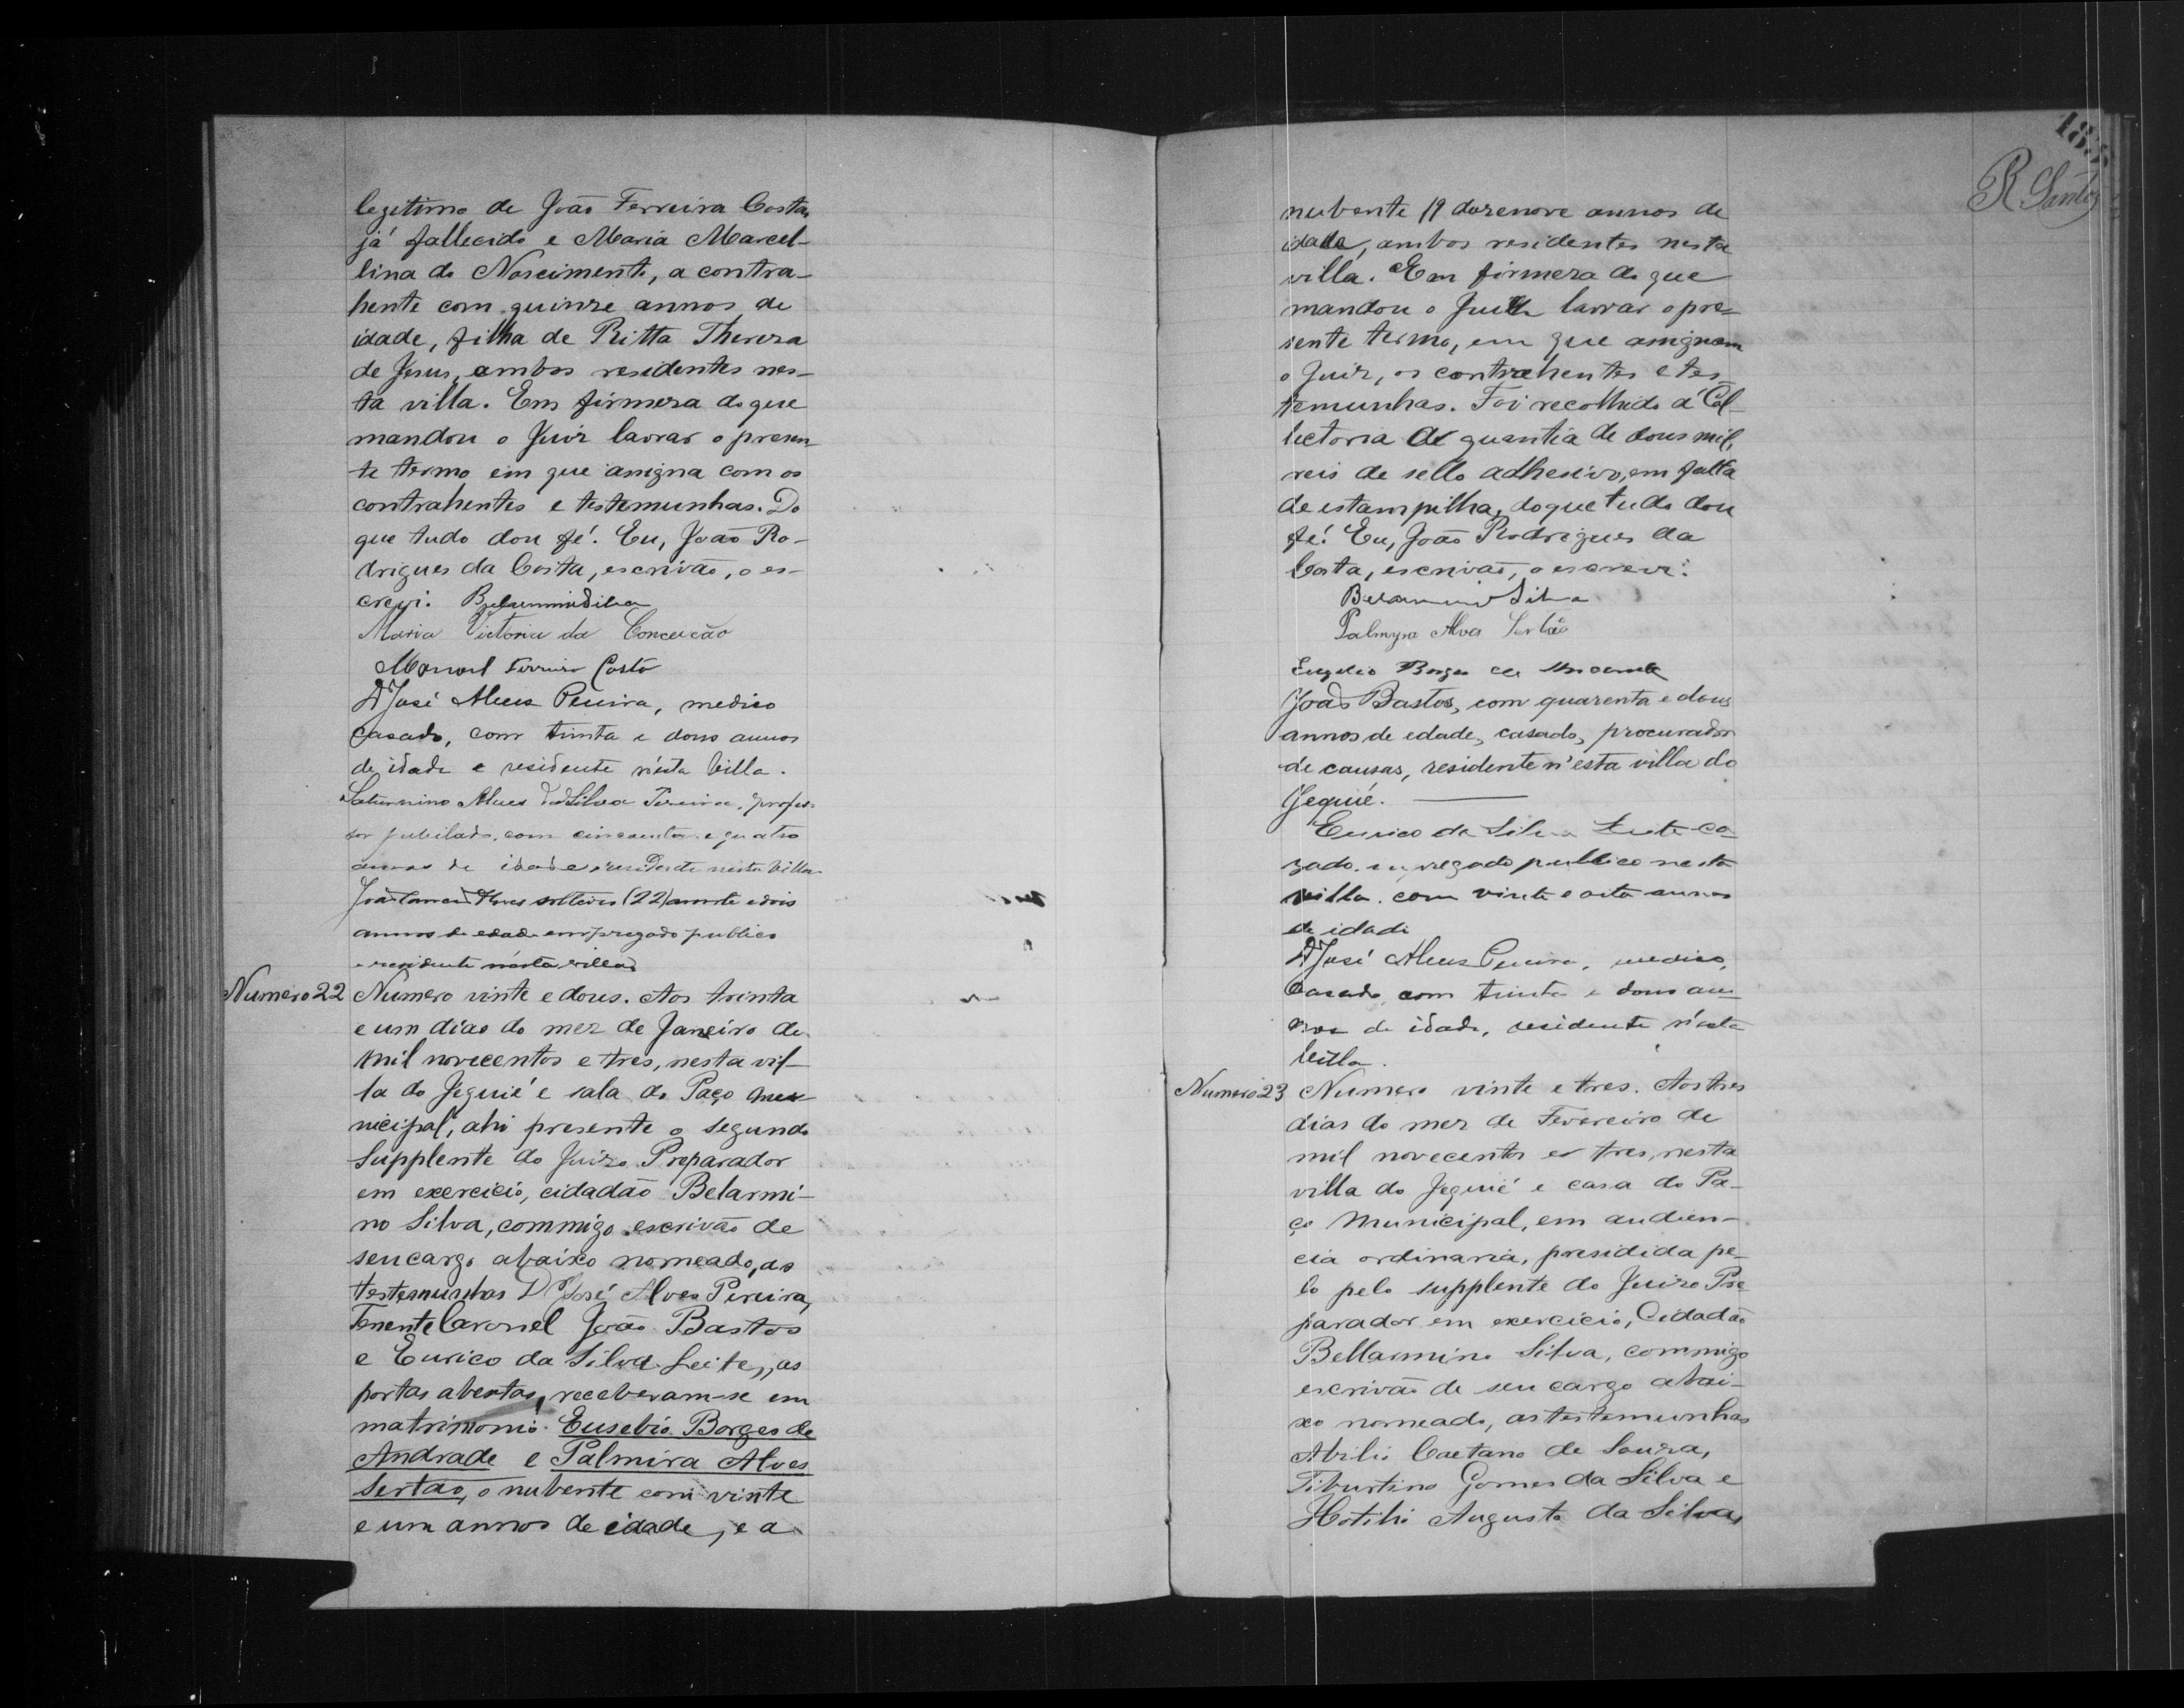 legitimo de João Ferreira Costa,
já fallecido e Maria Marcel-
lina do Nascimento, a contra-
hente com quinze annos de
idade, filha de Ritta Thereza
de Jesus, ambos residentes nes-
ta villa. Em firmeza do que
mandou o Juiz lavrar o presen-
te termo em que assigna com os
contrahentes e testemunhas. Do
que tudo dou fé. Eu, João Ro-
drigues da Costa, escrivão, o es-
crevi. Belarmino Silva
Maria Victoria da Conceição
Manoel Ferreira Costa
Dr José Alves Pereira, medico
casado, com trinta e dous annos
de idade e residente n'esta Villa.
Saturnino Alves da Silva Pereira, profes-
sor jubilado, com cincoenta e quatro
annos de idade residente nesta Villa
solteiro (22) vinte e dois
annos de edade empregado publico
e residente nésta villa
Numero 22 Numero vinte e dous. Aos trinta
e um dias do mez de Janeiro de
mil novecentos e tres, nesta vil-
la do Jequié e sala do Paço mu-
nicipal, ahi presente o segundo
Supplente do Juizo Preparador
em exercicio, cidadão Belarmi-
no Silva, commigo escrivão de
seu cargo abaixo nomeado, as
testemunhas Dr José Alves Pereira,
Tenente Coronel João Bastos
e Eurico da Silva Leite, as
portas abertas, receberam-se em
matrimonio Eusebio Borges de
Andrade e Palmira Alves
Sertão, o nubente com vinte
e um annos de edade, e a
185
R Santos
nubente 19 dozenove annos de
idade, ambos residentes nesta
villa. Em firmeza do que
mandou o Juiz lavrar o pre-
sente termo, em que assignam
o Juiz, os contrahentes e tes-
temunhas. Foi recolhido á Col-
lectoria a quantia de dous mil
reis de sello adhesivo, em falta
de estampilha, do que tudo dou
fé. Eu, João Rodrigues da
Costa, escrivão, o escrevi.
Belarmino Silva
Palmyra Alves Sertão
Borges de Andrade
João Bastos, com quarenta e dous
annos de edade, casado, procurador
de causas, residente n'esta villa do
Jequié.
Eurico da Silva Leite ca-
zado, empregado publico nesta
villa. com vinte e oito annos
de idade
Dr José Alves Pereira, medico,
Casado, com trinta e dous an-
nos de idade, residente n'esta
Villa.
Numero 23 Numero vinte e tres. Aos tres
dias do mez de Fevereiro de
mil novecentos e tres, nesta
villa do Jequié e casa do Pa-
ço Municipal, em audien-
cia ordinaria, presidida pe-
lo pelo supplente do Juizo Pre
parador em exercicio, Cidadão
Bellarmino Silva, commigo
escrivão de seu cargo abai-
xo nomeado, as testemunhas
Abilio Caetano de Souza,
Tiburtino Gomes da Silva e
Hotilio Augusto da Silva,